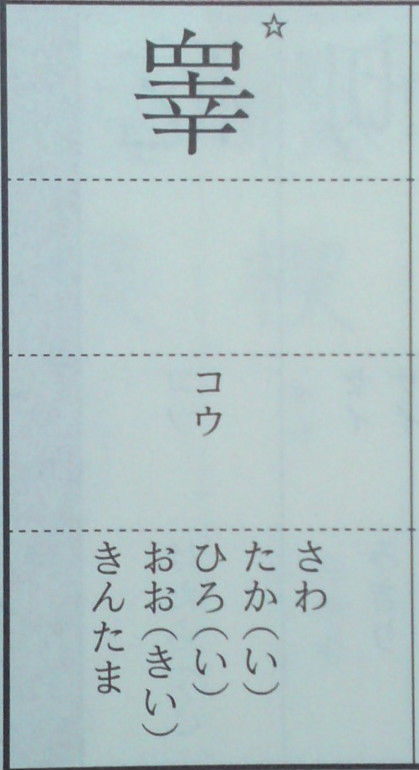 ☆
睾
コウ
さわ
たか(い)
ひろ(い)
おお(きい)
きんたま